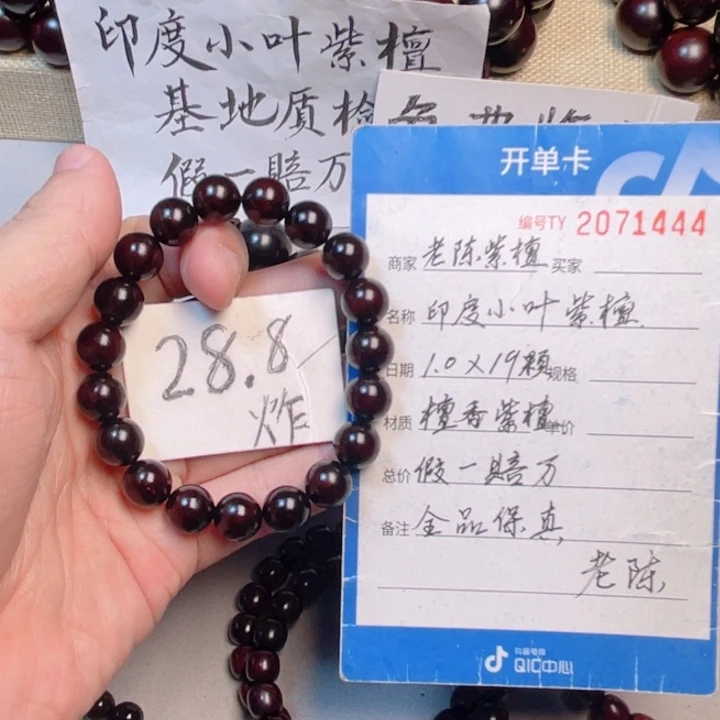 印度小叶紫檀
基地质检
假一赔万
28.8
炸
开单卡
编号TY 2071444
商家 老陈紫檀 买家
名称 印度小叶紫檀
日期 1.0×19颗 规格
材质 檀香紫檀 单价
总价 假一赔万
备注 全品保真
老陈
抖音电商
QIC中心